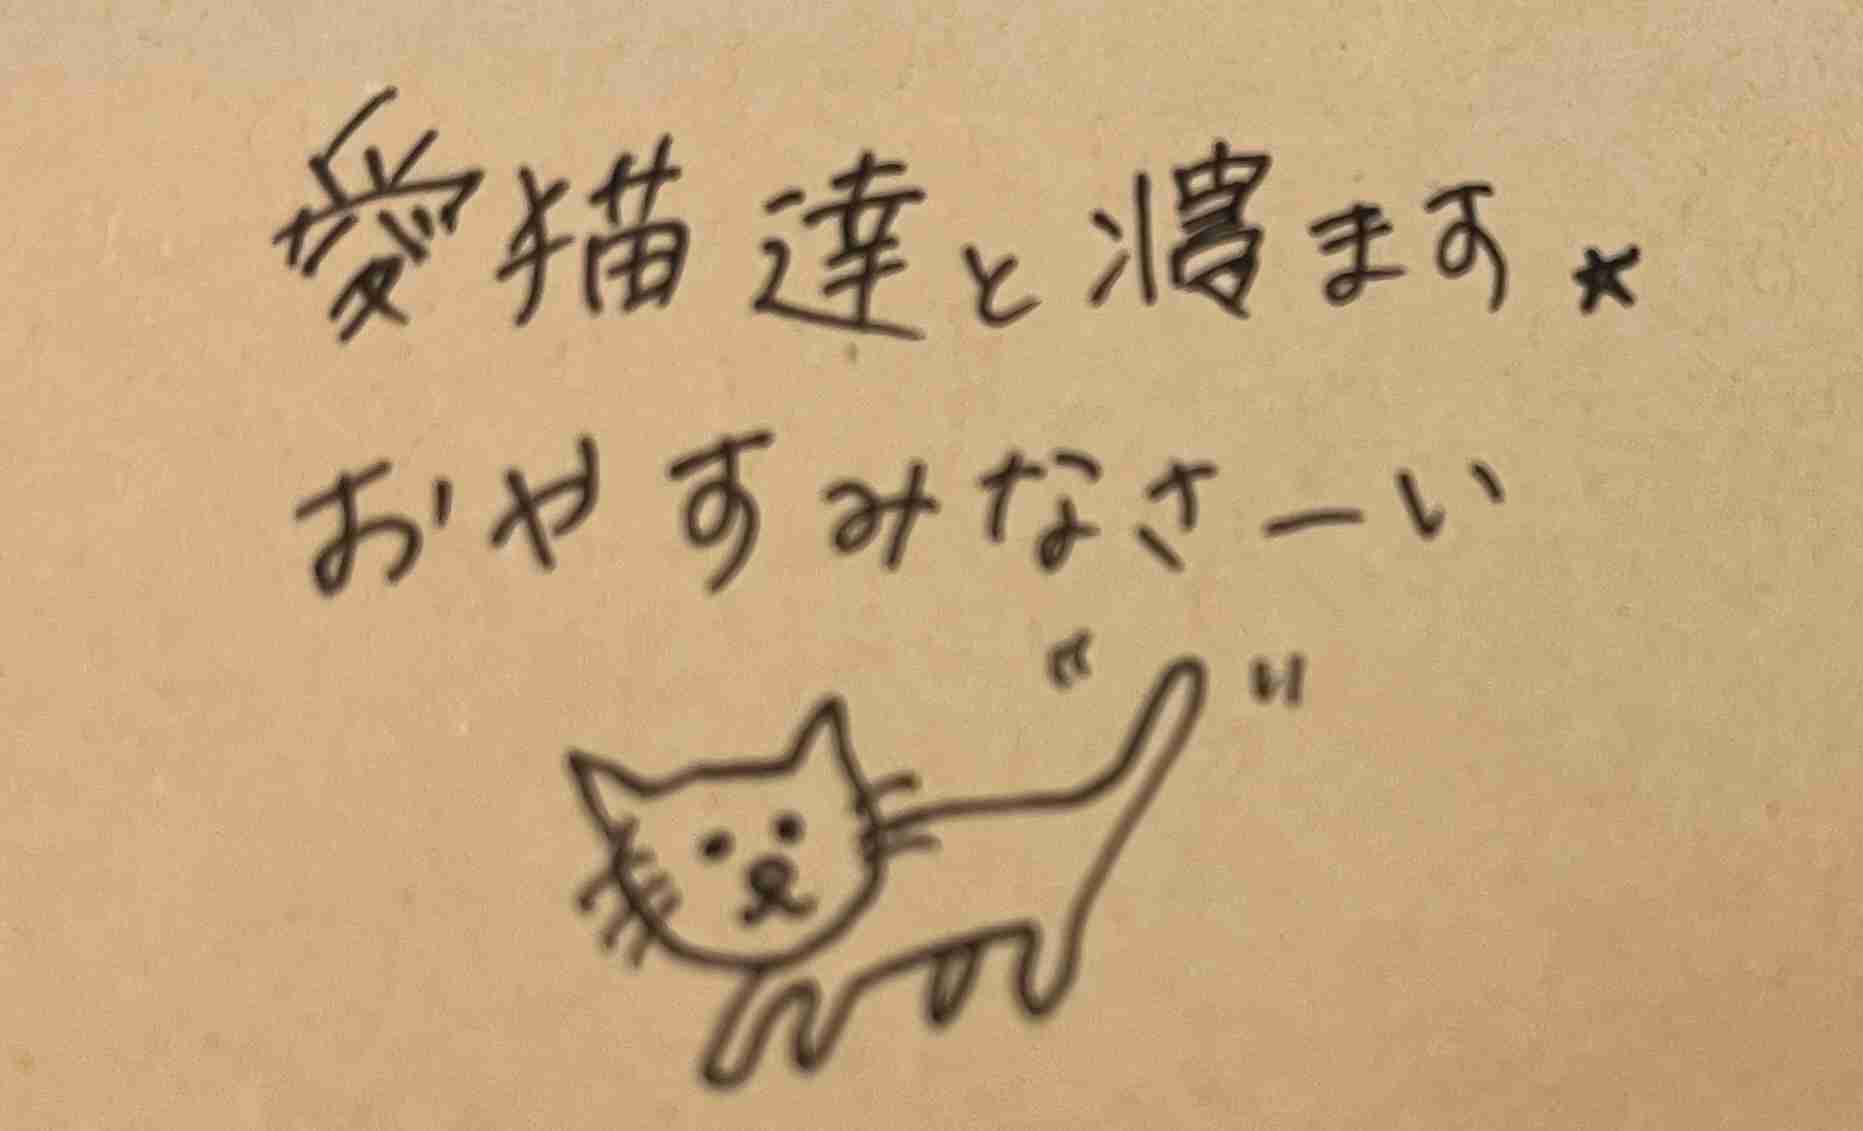 愛猫達と寝ます★
おやすみなさーい